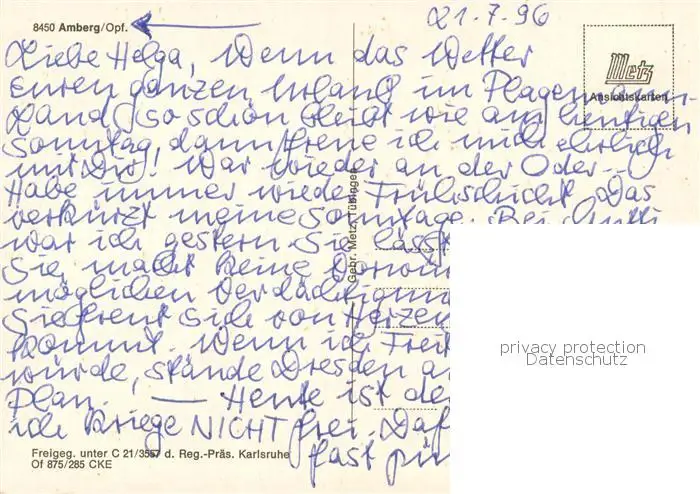 8450 Amberg/Opf.
21.7.96
Metz
Ansichtskarten
Liebe Helga, Wenn das Wetter
Euren ganzen Urlaub im
Land so schön bleibt wie am heutigen
Sonntag, dann freue ich mich ehrlich
mit Dir! War wieder an der Oder.
Habe immer wieder Frühschicht. Das
verkürzt meine Sonntage. Bei
war ich gestern. Sie lässt
Sie macht keine
möglichen Verdächtigun
Sie freut sich von Herzen
kommt. Wenn ich Frei
würde, stände Dresden a
Plan. — Heute ist de
ich kriege NICHT frei. Daf
fast
Gebr. Metz, Tübingen
Freigeg. unter C 21/3557 d. Reg.-Präs. Karlsruhe
Of 875/285 CKE
privacy protection
Datenschutz